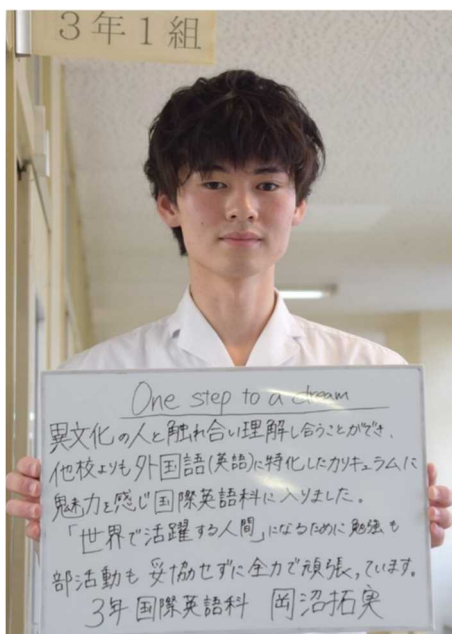 3年1組
One step to a dream
異文化の人と触れ合い理解し合うことができ、
他校よりも外国語(英語)に特化したカリキュラムに
魅力を感じ国際英語科に入りました。
「世界で活躍する人間」になるために勉強も
部活動も妥協せずに全力で頑張っています。
3年国際英語科 岡沼拓実